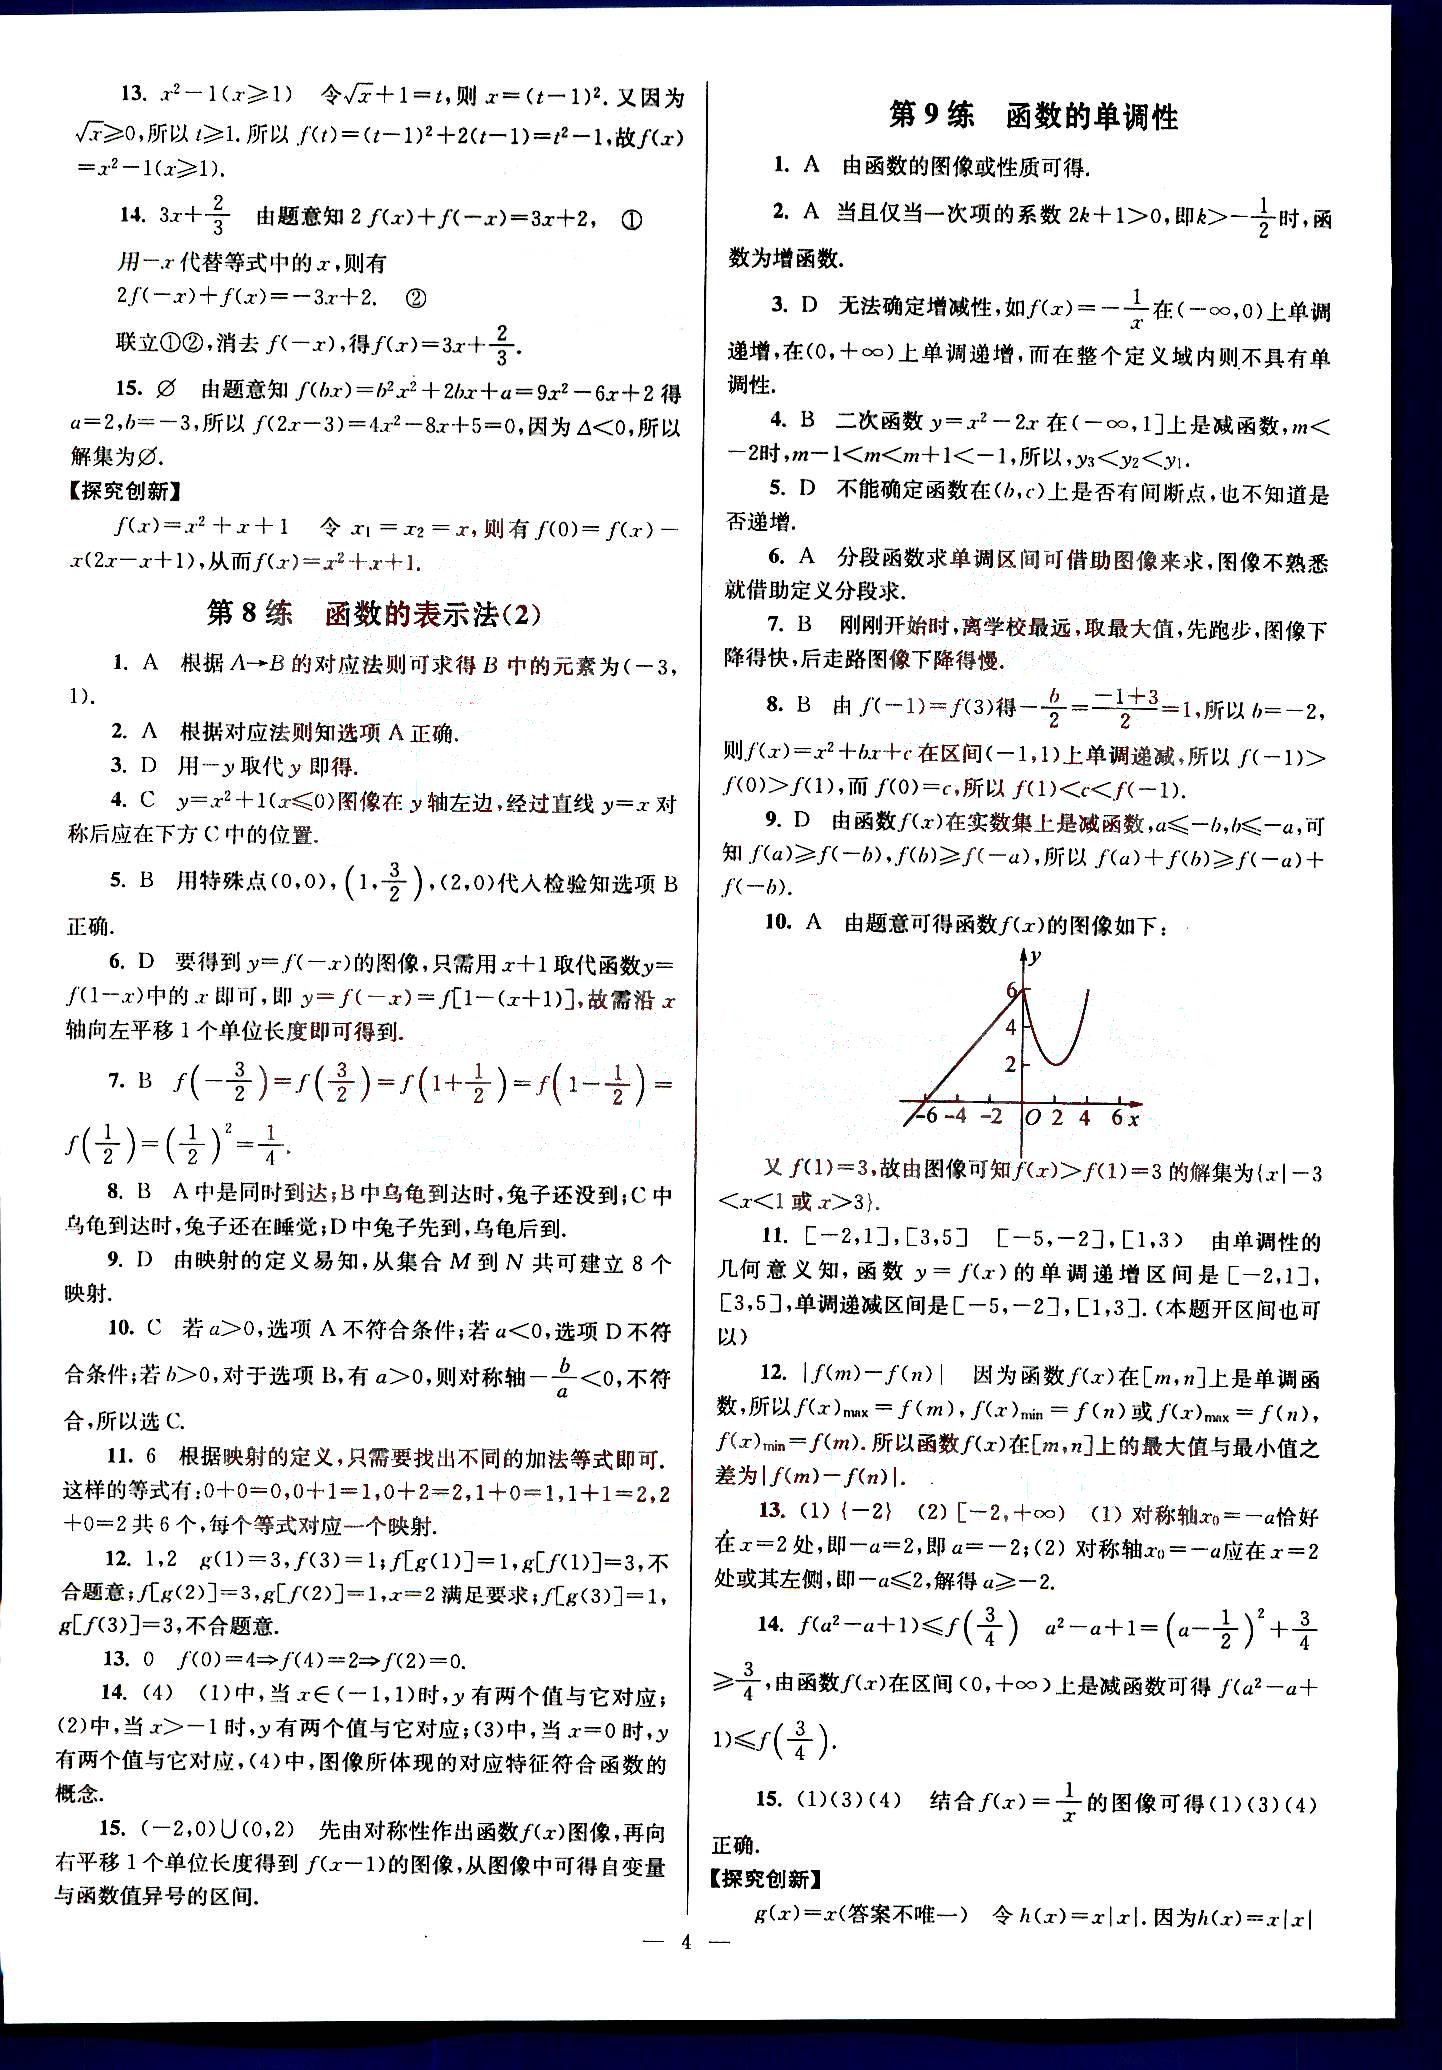 13. x²－1(x⩾1)　令√x＋1＝t,则 x＝(t－1)². 又因为
√x⩾0,所以 t⩾1. 所以 f(t)＝(t－1)²＋2(t－1)＝t²－1,故f(x)
＝x²－1(x⩾1).
14. 3x＋2/3　由题意知 2 f(x)＋f(－x)＝3x＋2,　①
用－x 代替等式中的 x,则有
2f(－x)＋f(x)＝－3x＋2.　②
联立①②,消去 f(－x),得f(x)＝3x＋2/3.
15. ∅　由题意知 f(bx)＝b²x²＋2bx＋a＝9x²－6x＋2 得
a＝2,b＝－3,所以 f(2x－3)＝4x²－8x＋5＝0,因为 Δ＜0,所以
解集为∅.
【探究创新】
f(x)＝x²＋x＋1　令 x₁＝x₂＝x,则有 f(0)＝f(x)－
x(2x－x＋1),从而f(x)＝x²＋x＋1.
第 8 练　函数的表示法(2)
1. A　根据 A→B 的对应法则可求得 B 中的元素为(－3,
1).
2. A　根据对应法则知选项 A 正确.
3. D　用－y 取代 y 即得.
4. C　y＝x²＋1(x⩽0)图像在 y 轴左边,经过直线 y＝x 对
称后应在下方 C 中的位置.
5. B　用特殊点(0,0),(1,3/2),(2,0)代入检验知选项 B
正确.
6. D　要得到 y＝f(－x)的图像,只需用 x＋1 取代函数y＝
f(1－x)中的 x 即可,即 y＝f(－x)＝f[1－(x＋1)],故需沿 x
轴向左平移 1 个单位长度即可得到.
7. B　f(－3/2)＝f(3/2)＝f(1＋1/2)＝f(1－1/2)＝
f(1/2)＝(1/2)²＝1/4.
8. B　A 中是同时到达;B 中乌龟到达时,兔子还没到;C 中
乌龟到达时,兔子还在睡觉;D 中兔子先到,乌龟后到.
9. D　由映射的定义易知,从集合 M 到 N 共可建立 8 个
映射.
10. C　若 a＞0,选项 A 不符合条件;若 a＜0,选项 D 不符
合条件;若 b＞0,对于选项 B,有 a＞0,则对称轴－b/a＜0,不符
合,所以选 C.
11. 6　根据映射的定义,只需要找出不同的加法等式即可.
这样的等式有:0＋0＝0,0＋1＝1,0＋2＝2,1＋0＝1,1＋1＝2,2
＋0＝2 共 6 个,每个等式对应一个映射.
12. 1,2　g(1)＝3,f(3)＝1;f[g(1)]＝1,g[f(1)]＝3,不
合题意;f[g(2)]＝3,g[f(2)]＝1,x＝2 满足要求;f[g(3)]＝1,
g[f(3)]＝3,不合题意.
13. 0　f(0)＝4⇒f(4)＝2⇒f(2)＝0.
14. (4)　(1)中,当 x∈(－1,1)时,y 有两个值与它对应;
(2)中,当 x＞－1 时,y 有两个值与它对应;(3)中,当 x＝0 时,y
有两个值与它对应,(4)中,图像所体现的对应特征符合函数的
概念.
15. (－2,0)∪(0,2)　先由对称性作出函数f(x)图像,再向
右平移 1 个单位长度得到 f(x－1)的图像,从图像中可得自变量
与函数值异号的区间.
第 9 练　函数的单调性
1. A　由函数的图像或性质可得.
2. A　当且仅当一次项的系数 2k＋1＞0,即k＞－1/2时,函
数为增函数.
3. D　无法确定增减性,如f(x)＝－1/x在(－∞,0)上单调
递增,在(0,＋∞)上单调递增,而在整个定义域内则不具有单
调性.
4. B　二次函数 y＝x²－2x 在(－∞,1]上是减函数,m＜
－2时,m－1＜m＜m＋1＜－1,所以,y₃＜y₂＜y₁.
5. D　不能确定函数在(b,c)上是否有间断点,也不知道是
否递增.
6. A　分段函数求单调区间可借助图像来求,图像不熟悉
就借助定义分段求.
7. B　刚刚开始时,离学校最远,取最大值,先跑步,图像下
降得快,后走路图像下降得慢.
8. B　由 f(－1)＝f(3)得－b/2＝(－1＋3)/2＝1,所以 b＝－2,
则f(x)＝x²＋bx＋c 在区间(－1,1)上单调递减,所以 f(－1)＞
f(0)＞f(1),而 f(0)＝c,所以 f(1)＜c＜f(－1).
9. D　由函数f(x)在实数集上是减函数,a⩽－b,b⩽－a,可
知 f(a)⩾f(－b),f(b)⩾f(－a),所以 f(a)＋f(b)⩾f(－a)＋
f(－b).
10. A　由题意可得函数f(x)的图像如下:
y
6
4
2
－6 －4 －2 O 2 4 6 x
又 f(1)＝3,故由图像可知f(x)＞f(1)＝3 的解集为{x|－3
＜x＜1 或 x＞3}.
11. [－2,1],[3,5]　[－5,－2],[1,3)　由单调性的
几何意义知,函数 y＝f(x)的单调递增区间是[－2,1],
[3,5],单调递减区间是[－5,－2],[1,3].(本题开区间也可
以)
12. |f(m)－f(n)|　因为函数f(x)在[m,n]上是单调函
数,所以f(x)max＝f(m),f(x)min＝f(n)或f(x)max＝f(n),
f(x)min＝f(m). 所以函数f(x)在[m,n]上的最大值与最小值之
差为|f(m)－f(n)|.
13. (1) {－2}　(2) [－2,＋∞)　(1) 对称轴x₀＝－a恰好
在 x＝2 处,即－a＝2,即 a＝－2;(2) 对称轴x₀＝－a应在 x＝2
处或其左侧,即－a⩽2,解得 a⩾－2.
14. f(a²－a＋1)⩽f(3/4)　a²－a＋1＝(a－1/2)²＋3/4
⩾3/4,由函数f(x)在区间(0,＋∞)上是减函数可得 f(a²－a＋
1)⩽f(3/4).
15. (1)(3)(4)　结合f(x)＝1/x的图像可得(1)(3)(4)
正确.
【探究创新】
g(x)＝x(答案不唯一)　令 h(x)＝x|x|. 因为h(x)＝x|x|
— 4 —